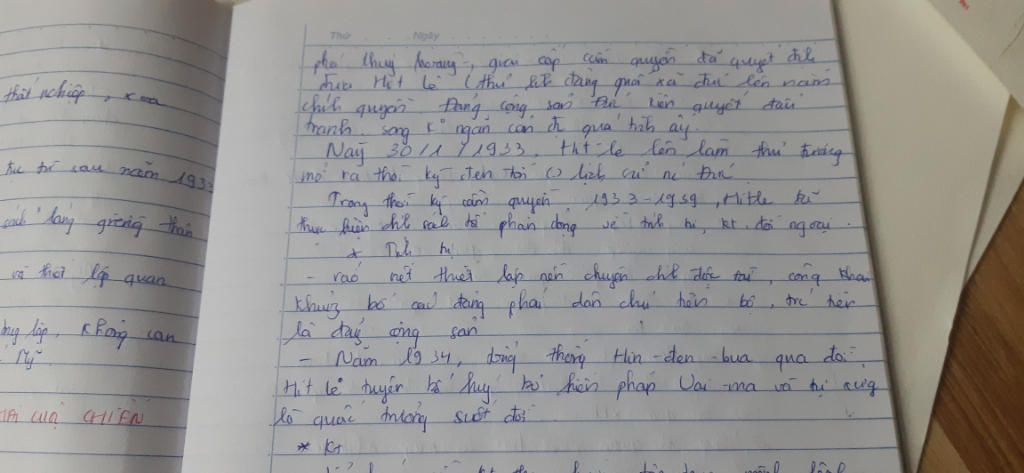 thất nghiệp, xoa
tư từ sau năm 1933
sách "láng giềng thân
và thời lập quan
ng lập, không can
Mỹ
CUỘC CHIẾN
Thứ Ngày
phó khủng hoảng, giai cấp cầm quyền đã quyết đh
đưa Hít le (thủ lĩnh đảng quốc xã đức lên nắm
chính quyền. Đảng cộng sản Đức kiên quyết đấu
tranh. song k° ngăn cản đc quá trình ấy.
Ngày 30/1/1933, Hít-le lên làm thủ tướng
mở ra thời kỳ đen tối () lịch sử nc Đức
Trong thời kỳ cầm quyền 1933-1939, Hitle
thực hiện chính sách phản động về ctrị, kt, đối ngoại.
* Tính trị
- ráo riết thiết lập nền chuyên chế độc tài, công khai
khủng bố các đảng phái dân chủ tiến bộ, trc hết
là đảng cộng sản
- Năm 1934, tổng thống Hin-đen-bua qua đời.
Hít le tuyên bố huỷ bỏ hiến pháp Vai-ma và tự xưng
là quốc trưởng suốt đời
* KT